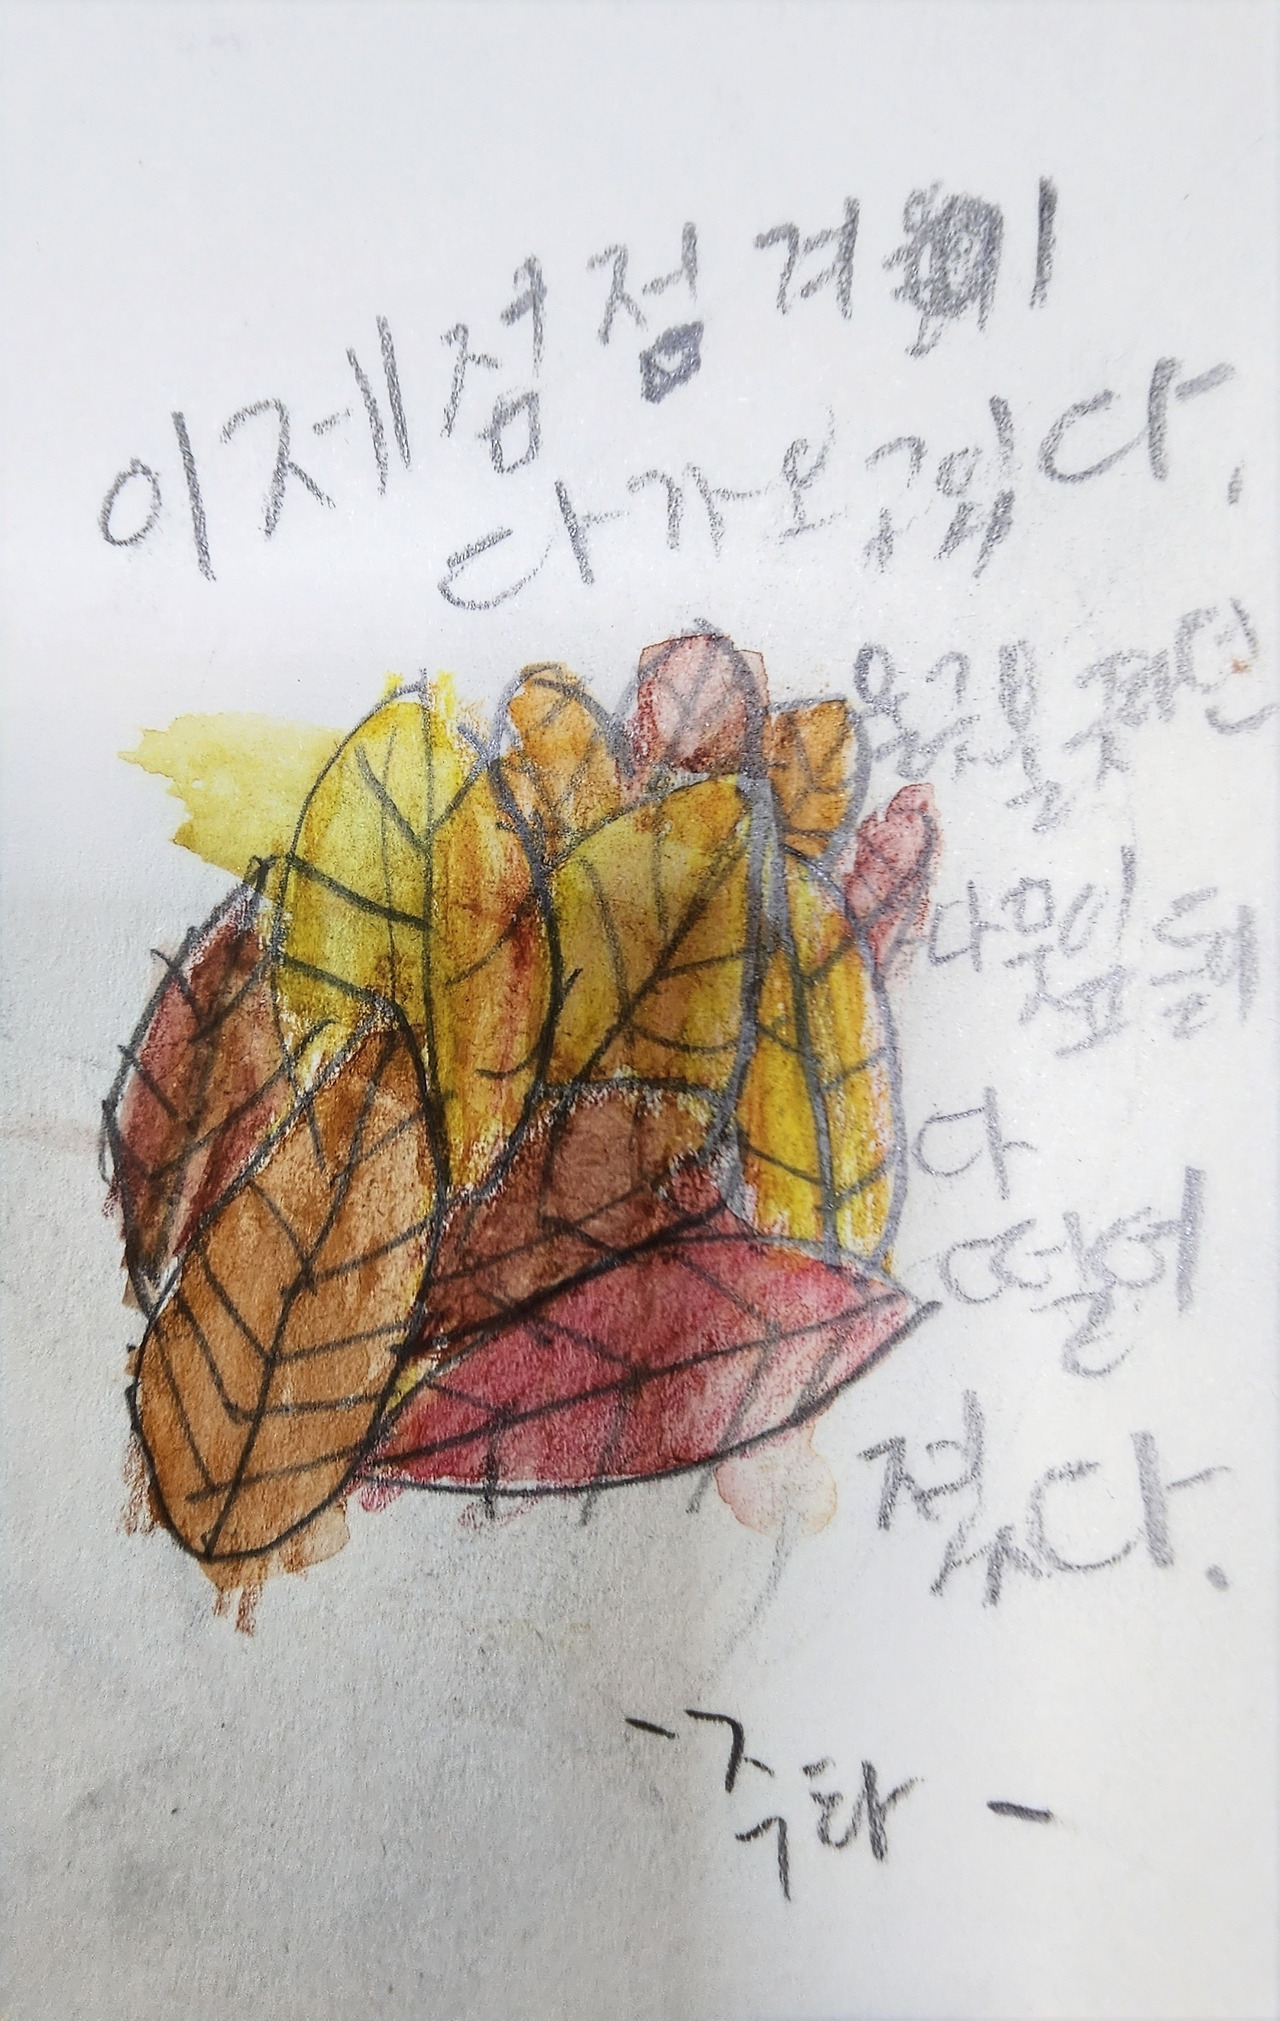 이제 점점 겨울이
다가오고 있다.
울긋불긋
나뭇잎들이
다
떨어
졌다.